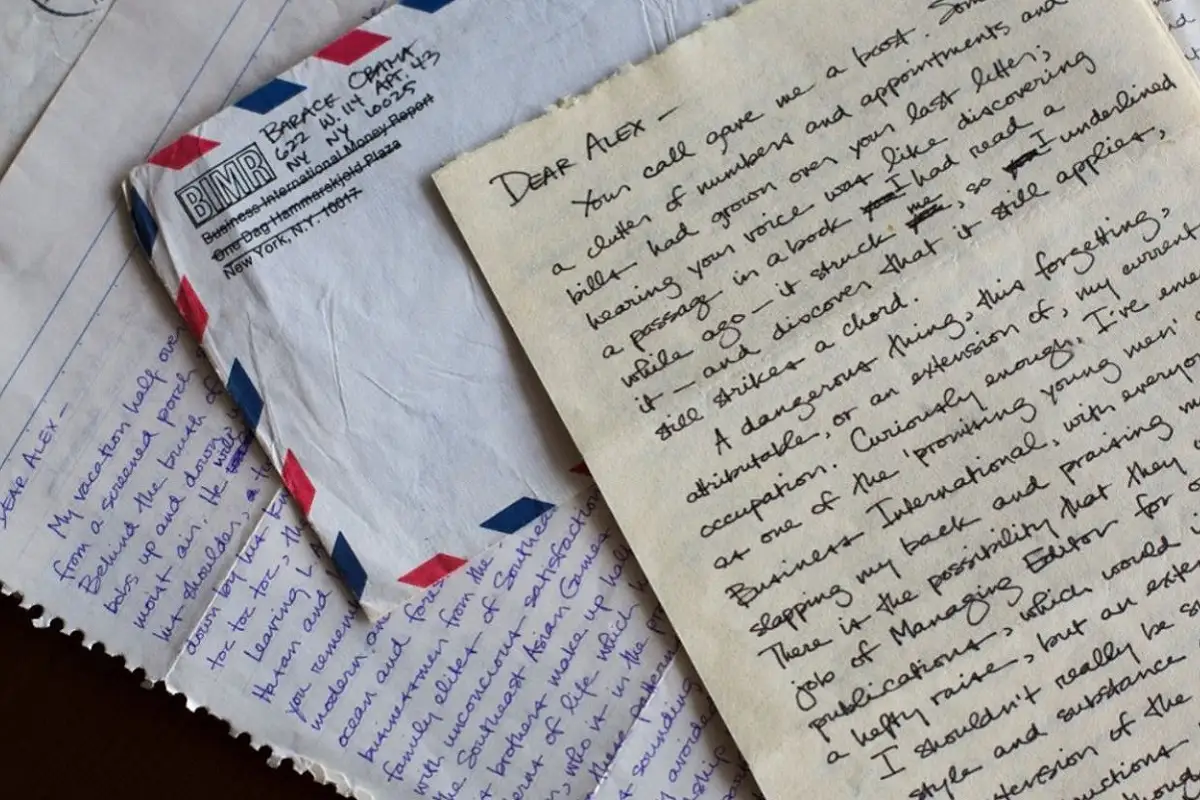 BARACK OBAMA
622 W. 114 APT. 43
NY NY 10025
BIMR
Business International Money Report
One Dag Hammarskjold Plaza
New York, N.Y. 10017
DEAR ALEX —
Your call gave me a boost. Som
a clutter of numbers and appointments and
bills had grown over your last letter;
hearing your voice was like discovering
a passage in a book I had read a
while ago — it struck me, so I underlined
it — and discover that it still applies,
still strikes a chord.
A dangerous thing, this forgetting,
attributable, or an extension of, my current
occupation. Curiously enough, I've eme
as one of the 'promising young men'
Business International, with everyo
slapping my back and praising my
There is the possibility that they
job of Managing Editor for
publications, which would
a hefty raise, but an exte
I shouldn't really be
style and substance
extension of the
uctions
though
DEAR ALEX —
My vacation half over
from a screened porch
Behind the brush of
bobs up and down,
moist air. He
his shoulder, a
down by his
toc toc toc, the
Leaving
Hasan and
you remem
modern and
ocean and fore
businessmen from the
family elites of Southea
with unconcious satisfaction
the Southeast Asian Games
brothers make up hal
erns of life which
who is in the
these patterns
sounding
avoid